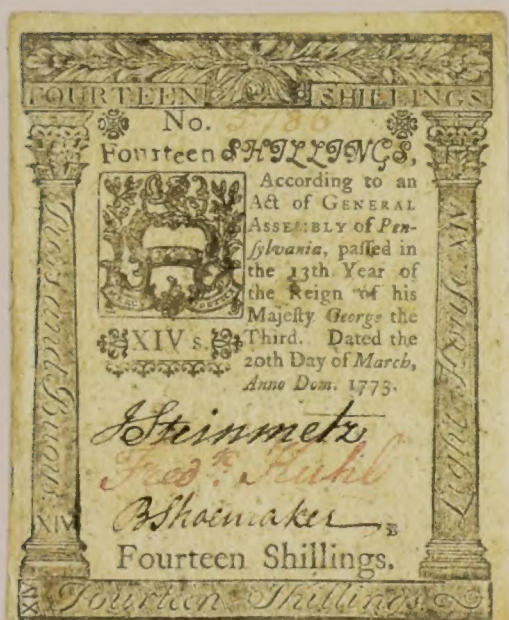 FOURTEEN SHILLINGS
No. 5786
Fourteen SHILLINGS,
According to an
Act of GENERAL
ASSEMBLY of Pen-
ſylvania, paſſed in
the 13th Year of
the Reign of his
Majeſty George the
Third. Dated the
20th Day of March,
Anno Dom. 1773.
MERCY JUSTICE
XIV s.
XIV
Light Houſe XIV
J Steinmetz
Fredk. Kuhl
B Shoemaker
B
Fourteen Shillings.
XIV
Fourteen Shillings